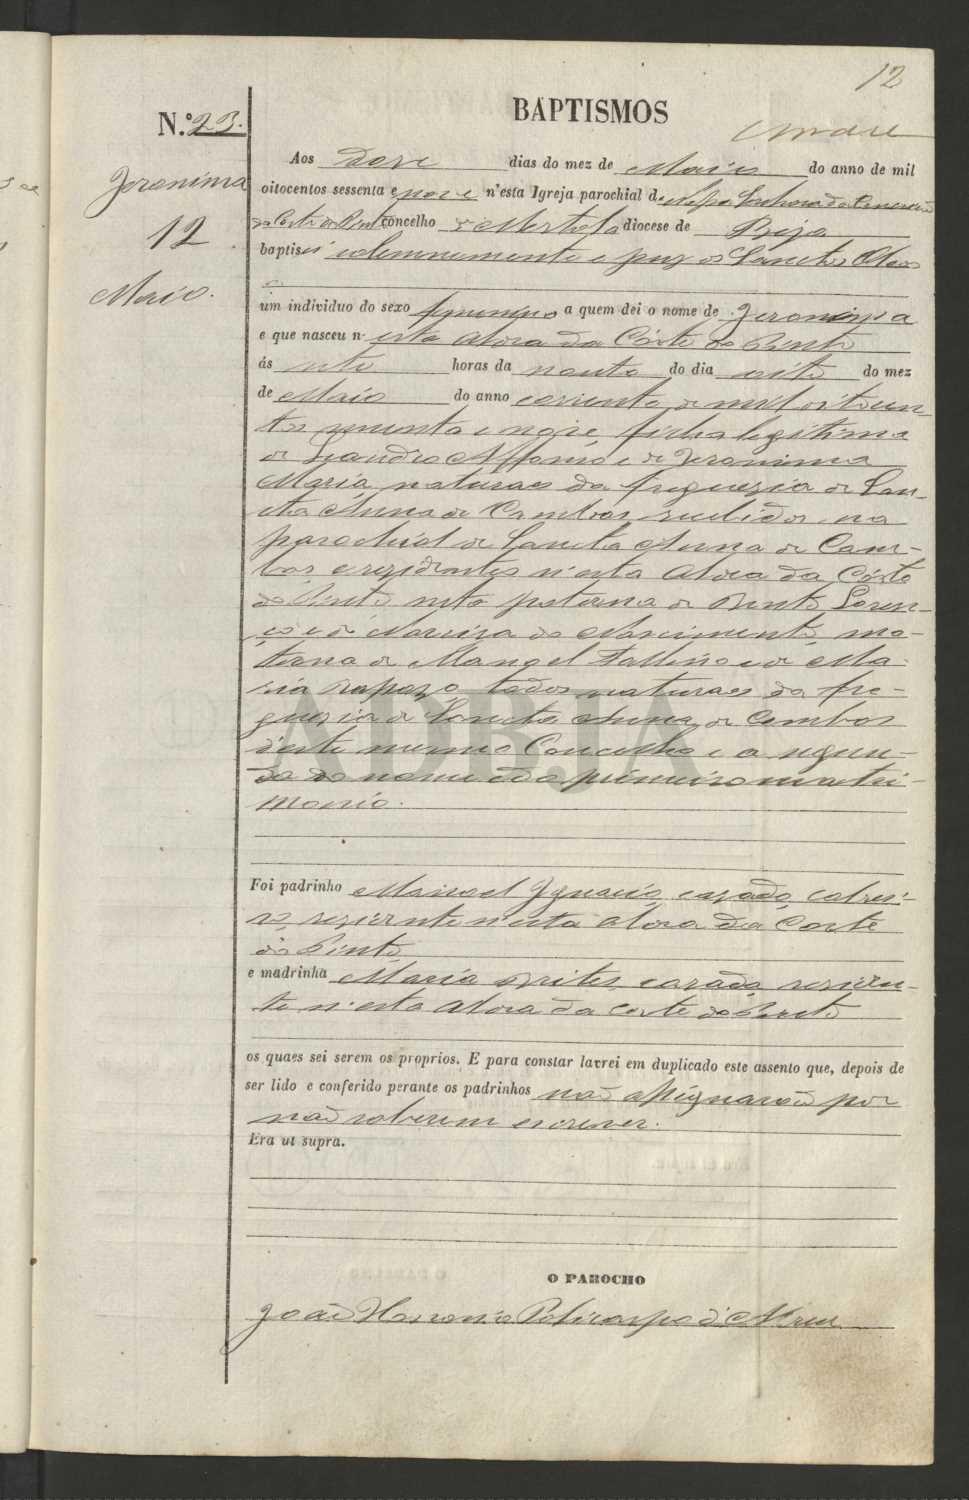 12
BAPTISMOS
N.º 23.
Jeronima
12
Maio.
Aos Doze dias do mez de Maio do anno de mil
oitocentos sessenta e nove n'esta Igreja parochial de Nossa Senhora da Conceição
da Corte do Pinto concelho de Mertola diocese de Beja
baptisei solemnemente e puz os Sanctos Oleos
um individuo do sexo femenino a quem dei o nome de Jeronima
e que nasceu n'esta Aldea da Côrte do Pinto
ás sete horas da noute do dia oito do mez
de Maio do anno corrente de mil oitocen-
tos sesenta e nove, filha legitima
de Leandro Affonso e de Jeronima
Maria, naturaes da freguezia de San-
cta Anna de Cambas, recebidos na
parochial de Sancta Anna de Cam-
bas e rezidentes n'esta Aldea da Côrte
do Pinto, neta paterna de Bento Louren-
ço e de Mariza do Nascimento, ma-
terna de Manoel e de Ma-
ria Rapozo, todos naturaes da fre-
guezia de Sancta Anna de Cambas
d'este mesmo Concelho e a segun-
da do nome e do primeiro matri-
monio.
ADBJA
Foi padrinho Manoel Ignacio, cazado, cabrei-
ro, rezidente n'esta Aldea da Corte
do Pinto
e madrinha Maria Brites, cazada, reziden-
te n'esta Aldea da Corte do Pinto
os quaes sei serem os proprios. E para constar lavrei em duplicado este assento que, depois de
ser lido e conferido perante os padrinhos não assignarão por
não saberem escrever.
Era ut supra.
O PAROCHO
João Honorio Policarpo d'Abreu